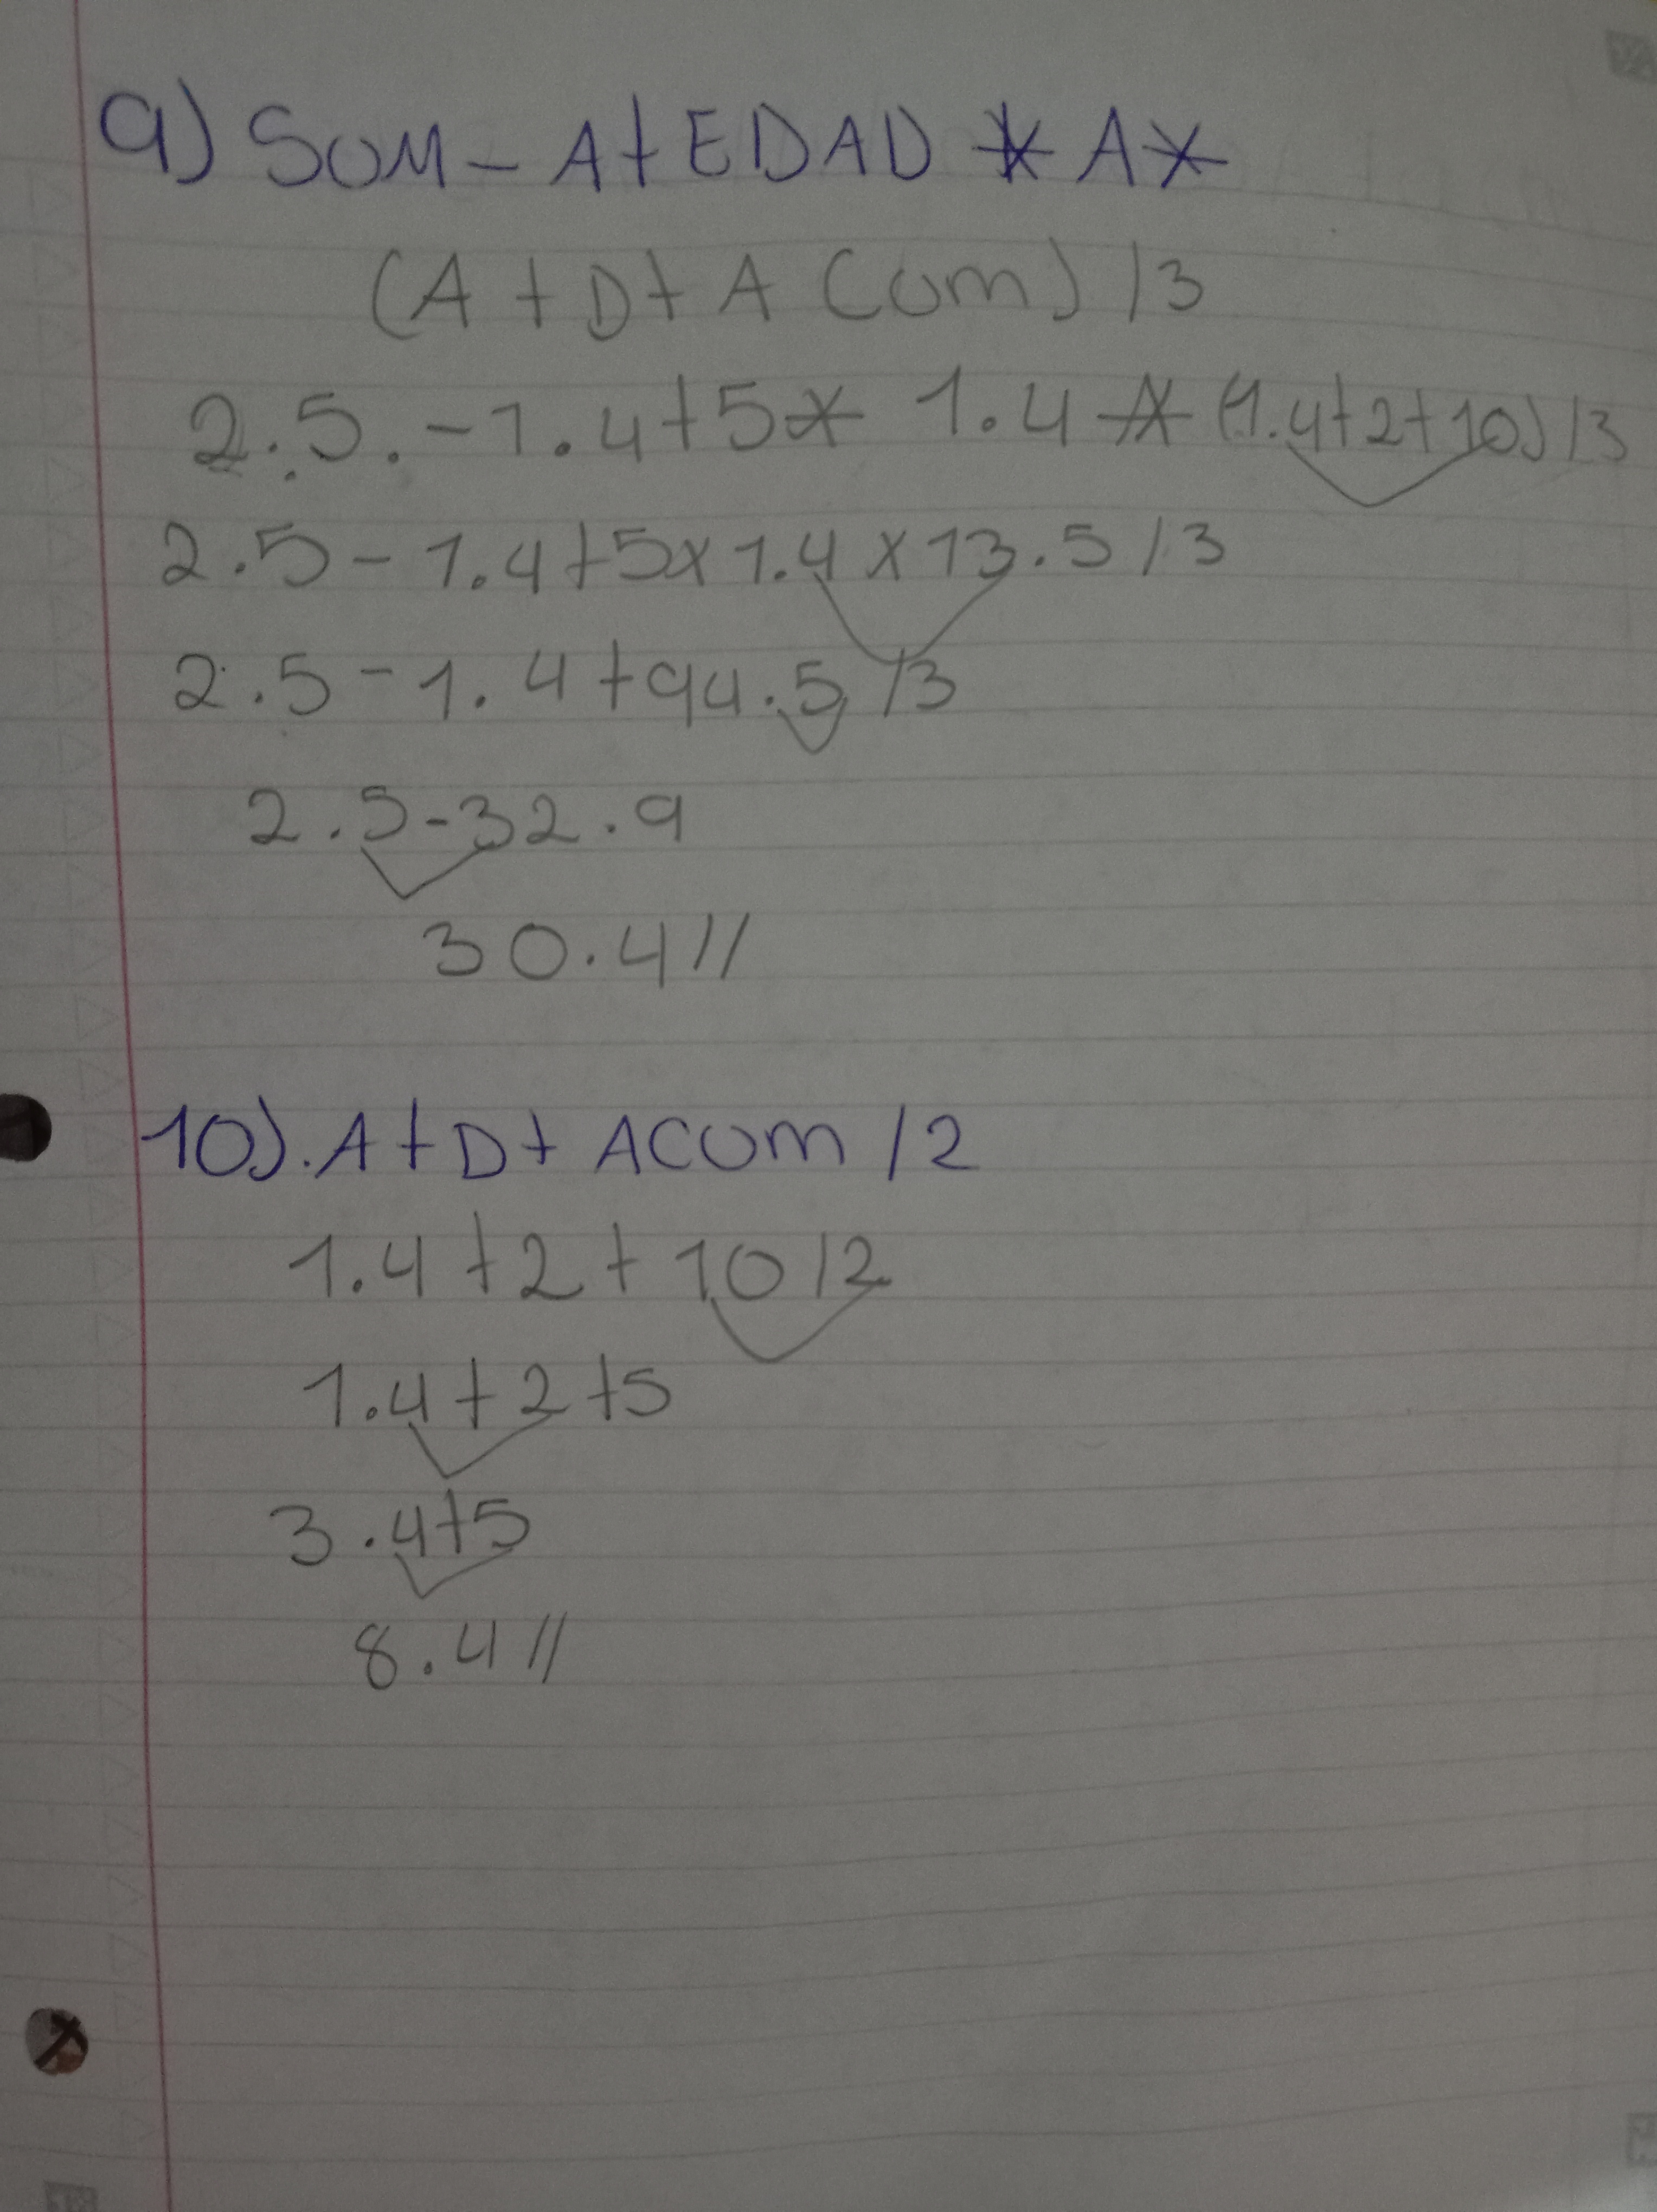 9) SUM - A + EDAD * A *
(A + D + A CUM) / 3
2.5. - 1.4 + 5 * 1.4 * (1.4 + 2 + 10) / 3
2.5 - 1.4 + 5 x 1.4 x 13.5 / 3
2.5 - 1.4 + 94.5 / 3
2.5 - 32.9
30.4 //
10). A + D + ACUM / 2
1.4 + 2 + 10 / 2
1.4 + 2 + 5
3.4 + 5
8.4 //